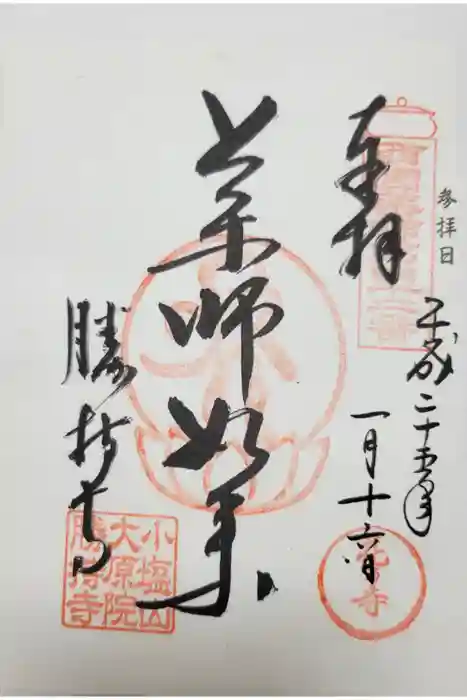 参拝日
平成二十五年
一月十六日
奉拝
薬師如来
勝持寺
花の寺
小塩山
大原院
勝持寺